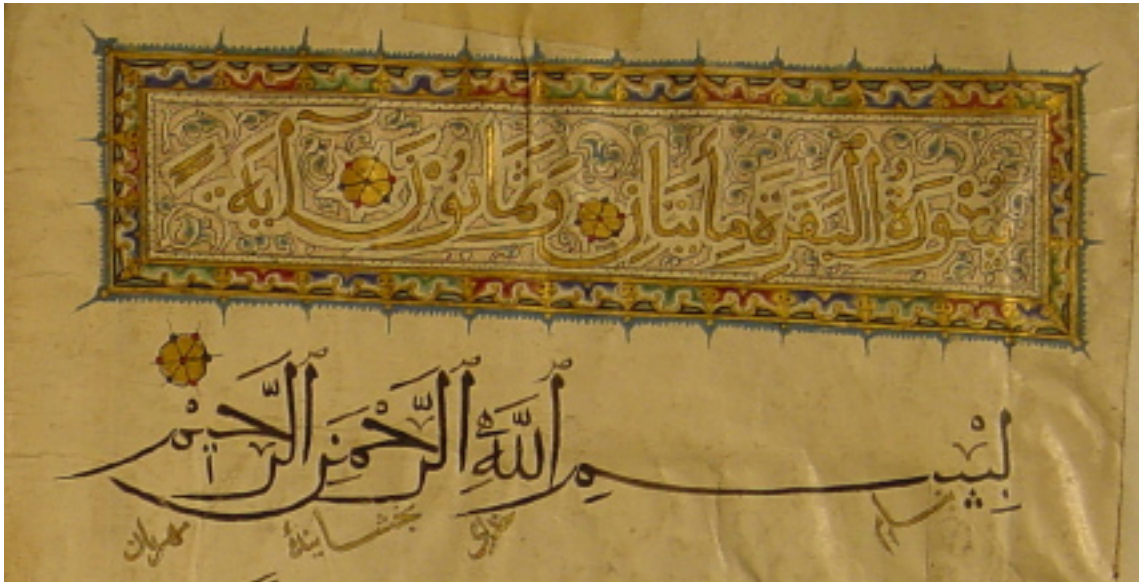 سُوْرَةُ الْبَقَرَةِ مِايَتَانِ وَثَمَانُونَ آيَة
بِسْمِ اللَّهِ الرَّحْمَنِ الرَّحِيْمِ
خدای بخشاینده مهربان